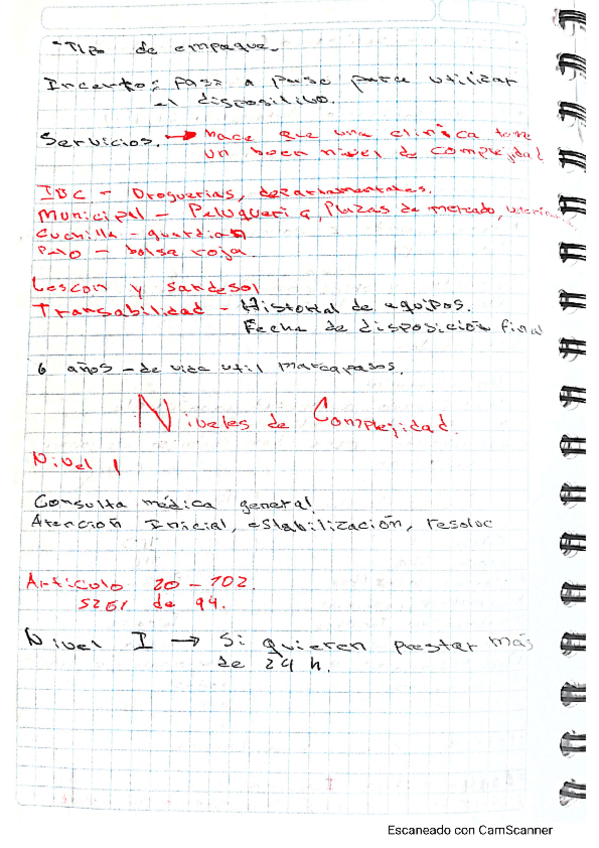 -Tipo de empaque.
Incerto: Paso a paso para utilizar
el dispositivo.
Servicios. → hace que una clínica tenga
un buen nivel de complejidad
IDC - Droguerias, departamentales.
Municipal - Peluqueria, Plazas de mercado,
Cuchilla - guardian
Pelo - bolsa roja.
y
Transabilidad - Historial de equipos.
Fecha de disposición final
6 años - de vida util marcapasos.
Niveles de Complejidad.
Nivel 1
Consulta médica general
Atención Inicial, estabilización, resoluc
Artículo 20 - 102.
5261 de 94.
Nivel I → Si quieren prestar más
de 24 h.
Escaneado con CamScanner